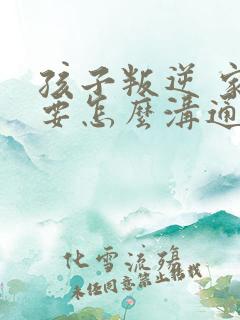 孩子叛逆 家
要怎麼溝通
化雪流殤
未经同意禁止转载